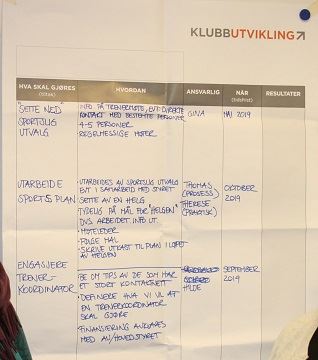 KLUBBUTVIKLING
HVA SKAL GJØRES
(tiltak)
HVORDAN
ANSVARLIG
NÅR
(tidsfrist)
RESULTATER
"SETTE NED"
SPORTSLIG
UTVALG
INFO PÅ TRENERMØTE, EVT. DIREKTE
KONTAKT MED BESTEMTE PERSONER
4-5 PERSONER
REGELMESSIGE MØTER
GINA
MAI 2019
UTARBEIDE
SPORTSPLAN
UTARBEIDES AV SPORTSLIG UTVALG
EVT I SAMARBEID MED STYRET
SETTE AV EN HELG
TYDELIG PÅ MÅL FOR "HELGEN"
DVS. ARBEIDET INFO UT.
- MØTELEDER
- FØLGE MAL
- SKRIVE UTKAST TIL PLAN I LØPET
AV HELGEN
THOMAS
(PROSESS)
THERESE
(PRAKTISK)
OKTOBER
2019
ENGASJERE
TRENER-
KOORDINATOR
- BE OM TIPS AV DE SOM HAR
ET STORT KONTAKTNETT
- DEFINERE HVA VI VIL AT
EN TRENERKOORDINATOR
SKAL GJØRE
- FINANSIERING AVKLARES
MED AU/HOVEDSTYRET
HILDE
SEPTEMBER
2019